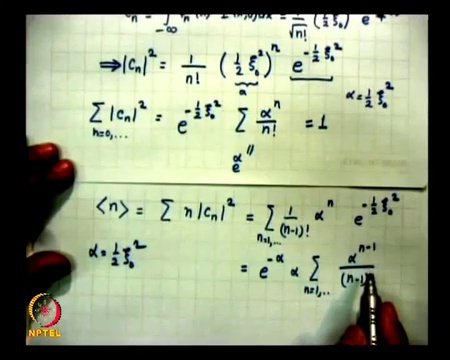 c_n = ∫_{-∞} ... dx = 1/√n! (½ ξ₀²) e
⇒ |c_n|² = 1/n! (½ ξ₀²)^n e^{-½ ξ₀²}
α α = ½ ξ₀²
Σ_{n=0,...} |c_n|² = e^{-½ ξ₀²} Σ α^n/n! = 1
e^α
⟨n⟩ = Σ n |c_n|² = Σ_{n=1,...} 1/(n-1)! α^n e^{-½ ξ₀²}
α = ½ ξ₀²
= e^{-α} α Σ_{n=1,...} α^{n-1}/(n-1)
NPTEL